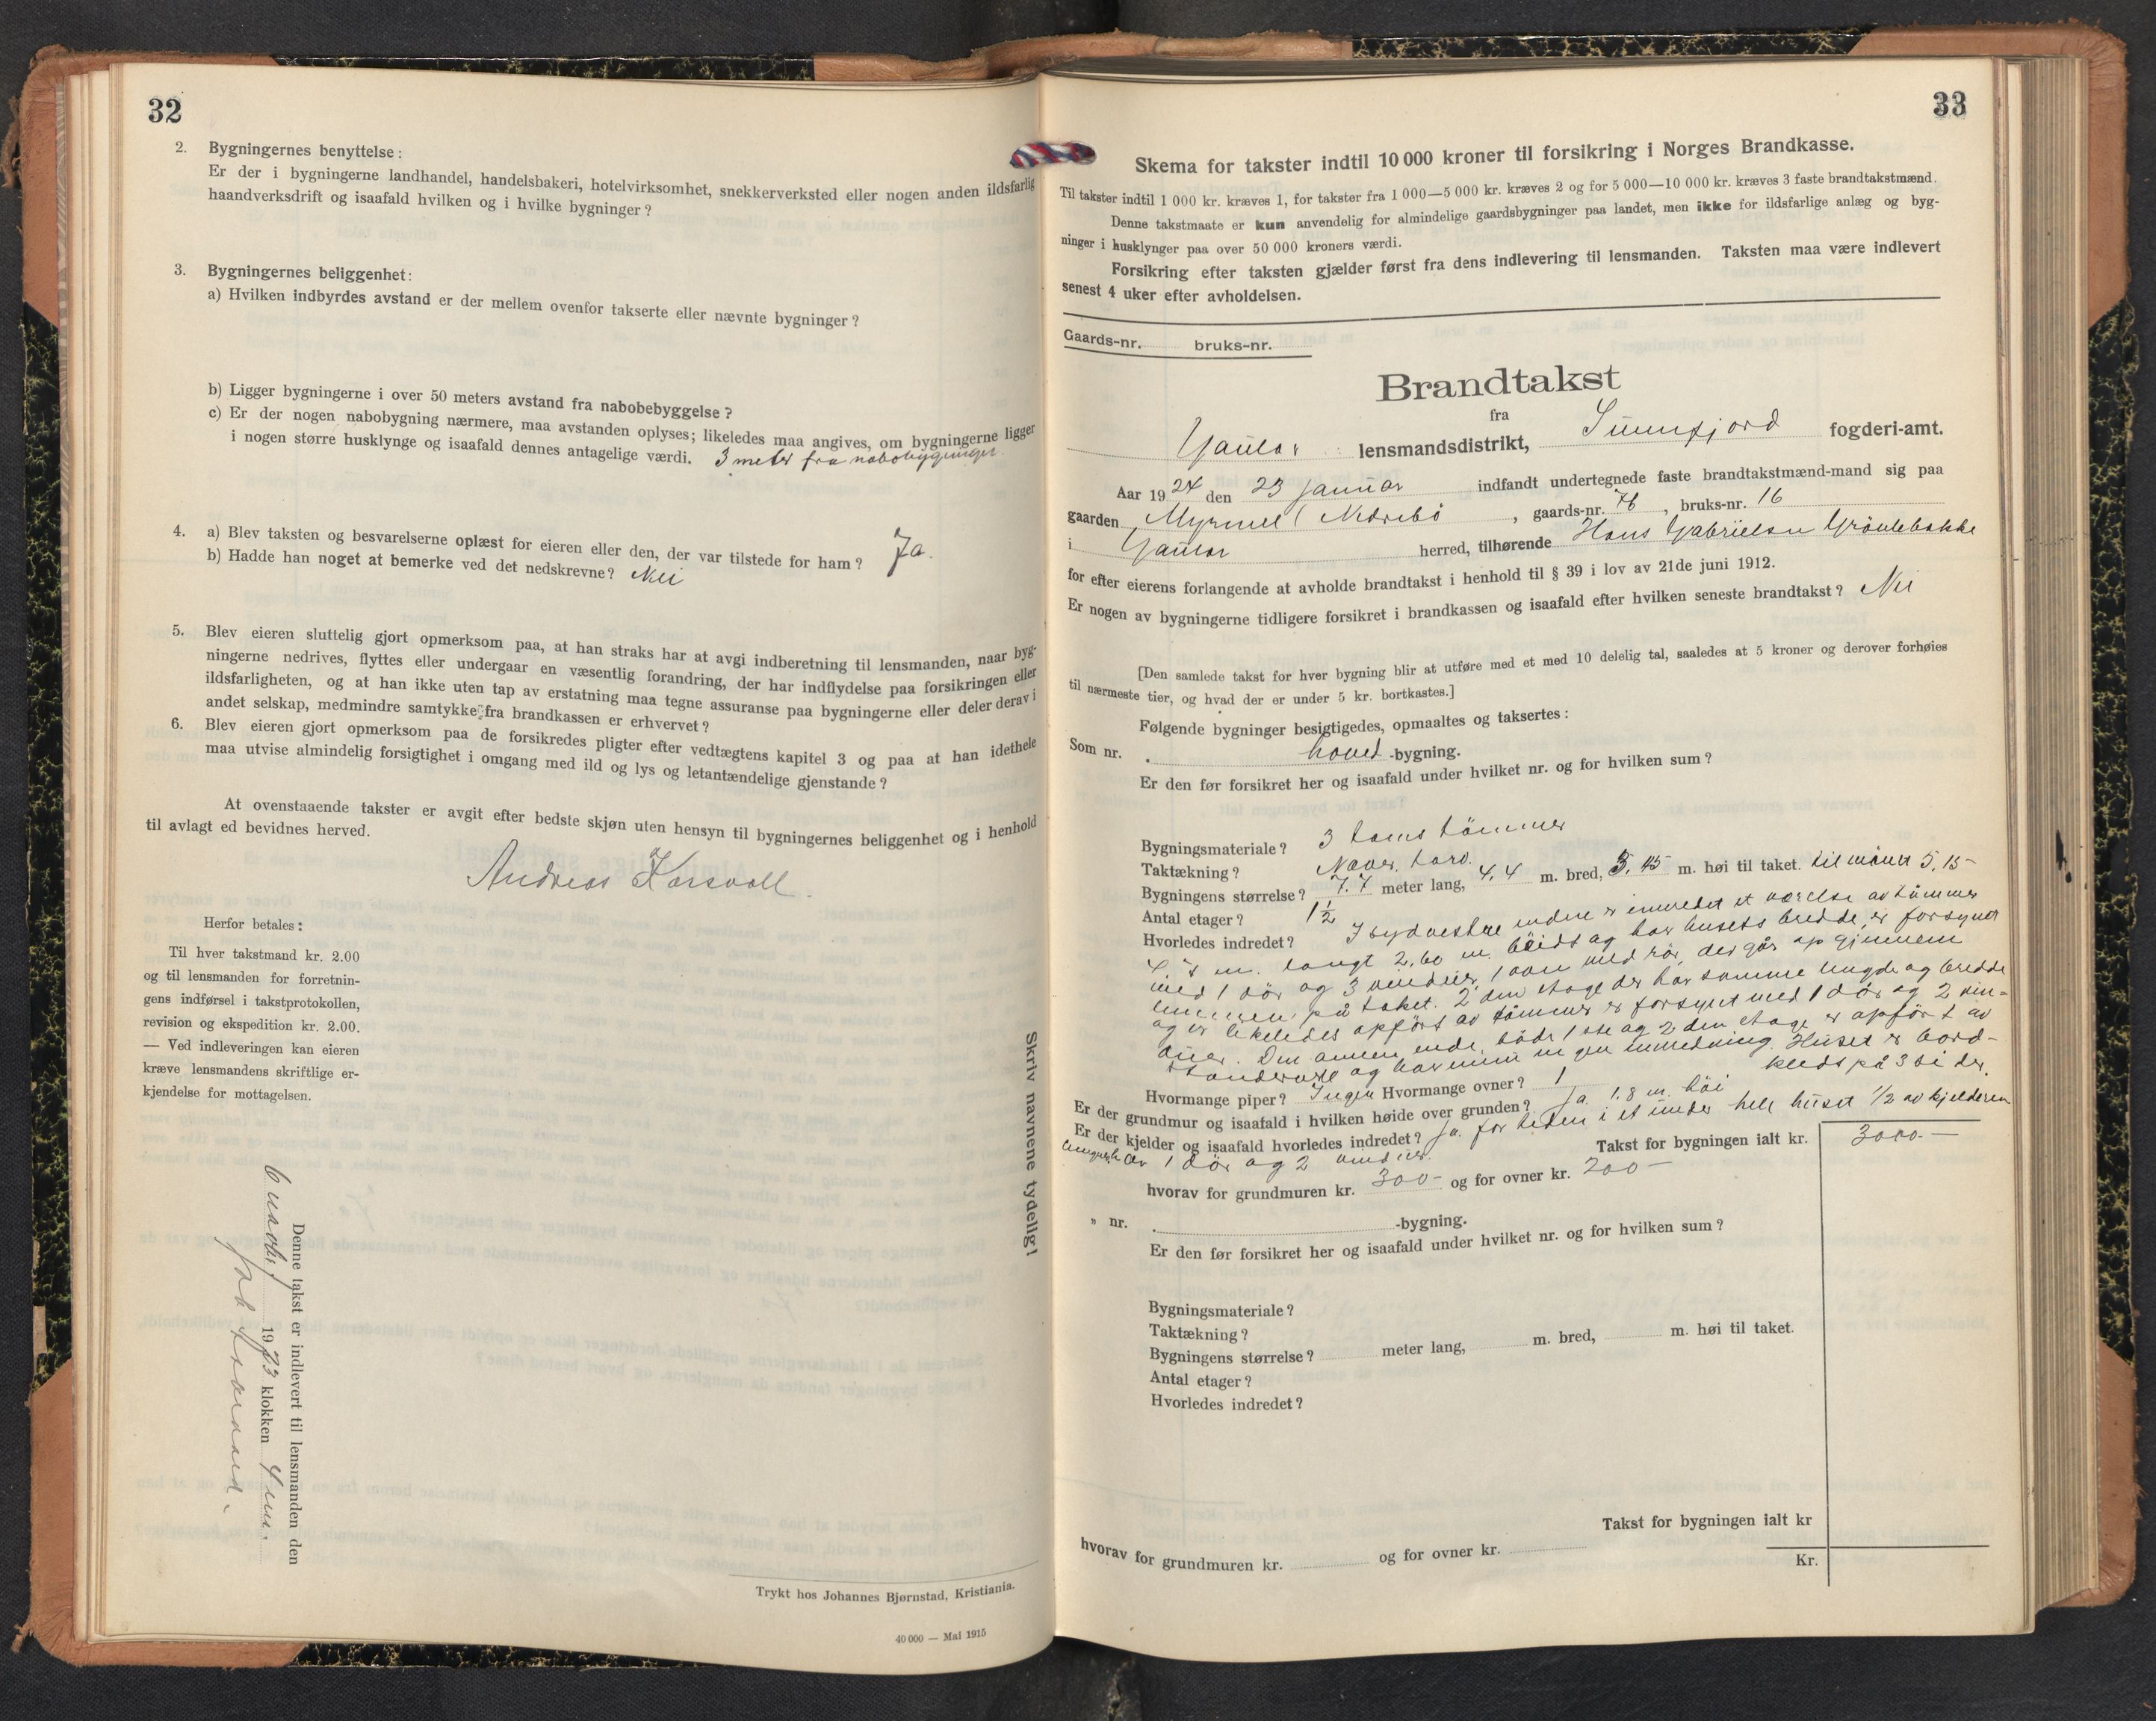 32
2. Bygningernes benyttelse:
Er der i bygningerne landhandel, handelsbakeri, hotelvirksomhet, snekkerverksted eller nogen anden ildsfarlig
haandverksdrift og isaafald hvilken og i hvilke bygninger?
3. Bygningernes beliggenhet:
a) Hvilken indbyrdes avstand er der mellem ovenfor takserte eller nævnte bygninger?
b) Ligger bygningerne i over 50 meters avstand fra nabobebyggelse?
c) Er der nogen nabobygning nærmere, maa avstanden oplyses; likeledes maa angives, om bygningerne ligger
i nogen større husklynge og isaafald dennes antagelige værdi. 3 meter fra nabobygninger
4. a) Blev taksten og besvarelserne oplæst for eieren eller den, der var tilstede for ham? Ja.
b) Hadde han noget at bemerke ved det nedskrevne? Nei
5. Blev eieren sluttelig gjort opmerksom paa, at han straks har at avgi indberetning til lensmanden, naar byg-
ningerne nedrives, flyttes eller undergaar en væsentlig forandring, der har indflydelse paa forsikringen eller
ildsfarligheten, og at han ikke uten tap av erstatning maa tegne assuranse paa bygningerne eller deler derav i
andet selskap, medmindre samtykke fra brandkassen er erhvervet?
6. Blev eieren gjort opmerksom paa de forsikredes pligter efter vedtægtens kapitel 3 og paa at han idethele
maa utvise almindelig forsigtighet i omgang med ild og lys og letantændelige gjenstande?
At ovenstaaende takster er avgit efter bedste skjøn uten hensyn til bygningernes beliggenhet og i henhold
til avlagt ed bevidnes herved.
Andreas Korsvoll.
Herfor betales:
Til hver takstmand kr. 2.00
og til lensmanden for forretnin-
gens indførsel i takstprotokollen,
revision og ekspedition kr. 2.00.
— Ved indleveringen kan eieren
kræve lensmandens skriftlige er-
kjendelse for mottagelsen.
Denne takst er indlevert til lensmanden den
6 1923 klokken 4
Skriv navnene tydelig!
Trykt hos Johannes Bjørnstad, Kristiania.
40 000 — Mai 1915
33
Skema for takster indtil 10 000 kroner til forsikring i Norges Brandkasse.
Til takster indtil 1 000 kr. kræves 1, for takster fra 1 000—5 000 kr. kræves 2 og for 5 000—10 000 kr. kræves 3 faste brandtakstmænd.
Denne takstmaate er kun anvendelig for almindelige gaardsbygninger paa landet, men ikke for ildsfarlige anlæg og byg-
ninger i husklynger paa over 50 000 kroners værdi.
Forsikring efter taksten gjælder først fra dens indlevering til lensmanden. Taksten maa være indlevert
senest 4 uker efter avholdelsen.
Gaards-nr. bruks-nr.
Brandtakst
fra
Gaular lensmandsdistrikt, Sunnfjord fogderi-amt.
Aar 1924 den 23 januar indfandt undertegnede faste brandtakstmænd-mand sig paa
gaarden Myrmel Nedrebö, gaards-nr. 76, bruks-nr. 16
i Gaular herred, tilhørende Hans Gabrielsen Grönlebakke
for efter eierens forlangende at avholde brandtakst i henhold til § 39 i lov av 21de juni 1912.
Er nogen av bygningerne tidligere forsikret i brandkassen og isaafald efter hvilken seneste brandtakst? Nei
[Den samlede takst for hver bygning blir at utføre med et med 10 delelig tal, saaledes at 5 kroner og derover forhøies
til nærmeste tier, og hvad der er under 5 kr. bortkastes.]
Følgende bygninger besigtigedes, opmaaltes og taksertes:
Som nr. hoved-bygning.
Er den før forsikret her og isaafald under hvilket nr. og for hvilken sum?
Bygningsmateriale? 3 toms tömmer
Taktækning? Næver, torv.
Bygningens størrelse? 7.7 meter lang, 4.4 m. bred, 3.45 m. høi til taket. til mönet 5.15
Antal etager? 1½
Hvorledes indredet? I sydvestre endene er innredet et værelse av tömmer
4.5 m. langt 2.60 m. breidt og har husets bredde, er forsynet
med 1 dör og 3 vinduer, 1 ovn med rör, der går op gjennem
på taket. 2 den etage der har samme lengde og bredde
og er likeledes opfört av tömmer er forsynet med 1 dör og 2 vin-
duer. Den annen ende, både 1ste og 2den etage er opfört av
og har ingen innredning. Huset er bord-
kledt på 3 sider.
Hvormange piper? Ingen Hvormange ovner? 1
Er der grundmur og isaafald i hvilken høide over grunden? Ja. 1.8 m. höi
Er der kjelder og isaafald hvorledes indredet? Ja. under hele huset ½ av kjelderen
1 dör og 2 vinduer.
Takst for bygningen ialt kr. 3000.—
hvorav for grundmuren kr. 300- og for ovner kr. 200—
„ nr. -bygning.
Er den før forsikret her og isaafald under hvilket nr. og for hvilken sum?
Bygningsmateriale?
Taktækning?
Bygningens størrelse? meter lang, m. bred, m. høi til taket.
Antal etager?
Hvorledes indredet?
Takst for bygningen ialt kr
hvorav for grundmuren kr. og for ovner kr.
Kr.